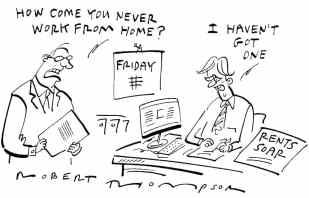 HOW COME YOU NEVER
WORK FROM HOME?
I HAVEN'T
GOT
ONE
FRIDAY
RENTS
SOAR
ROBERT THOMPSON